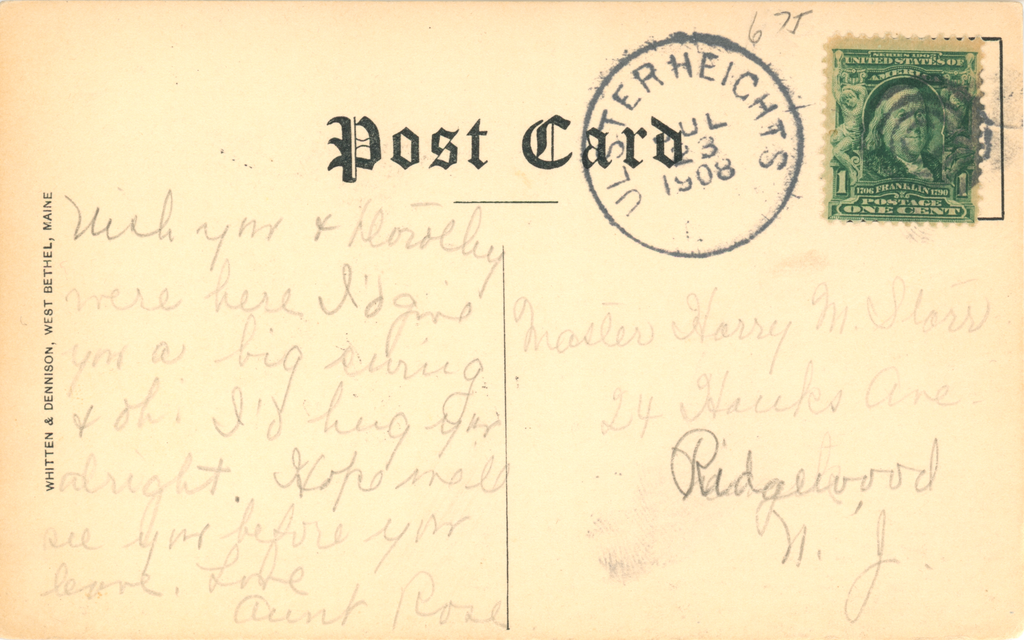 6 75
ULSTER HEIGHTS
JUL
23
1908
SERIES 1902
UNITED STATES OF
AMERICA
1 1706 FRANKLIN 1790 1
POSTAGE
ONE CENT
Post Card
WHITTEN & DENNISON, WEST BETHEL, MAINE
Wish you & Dorothy
were here I'd give
you a big swing
& oh. I'd hug you
alright. Hope we'll
see you before you
leave. Love
Aunt Rose
Master Harry M. Storr
24 Hauks Ave.
Ridgewood
N. J.